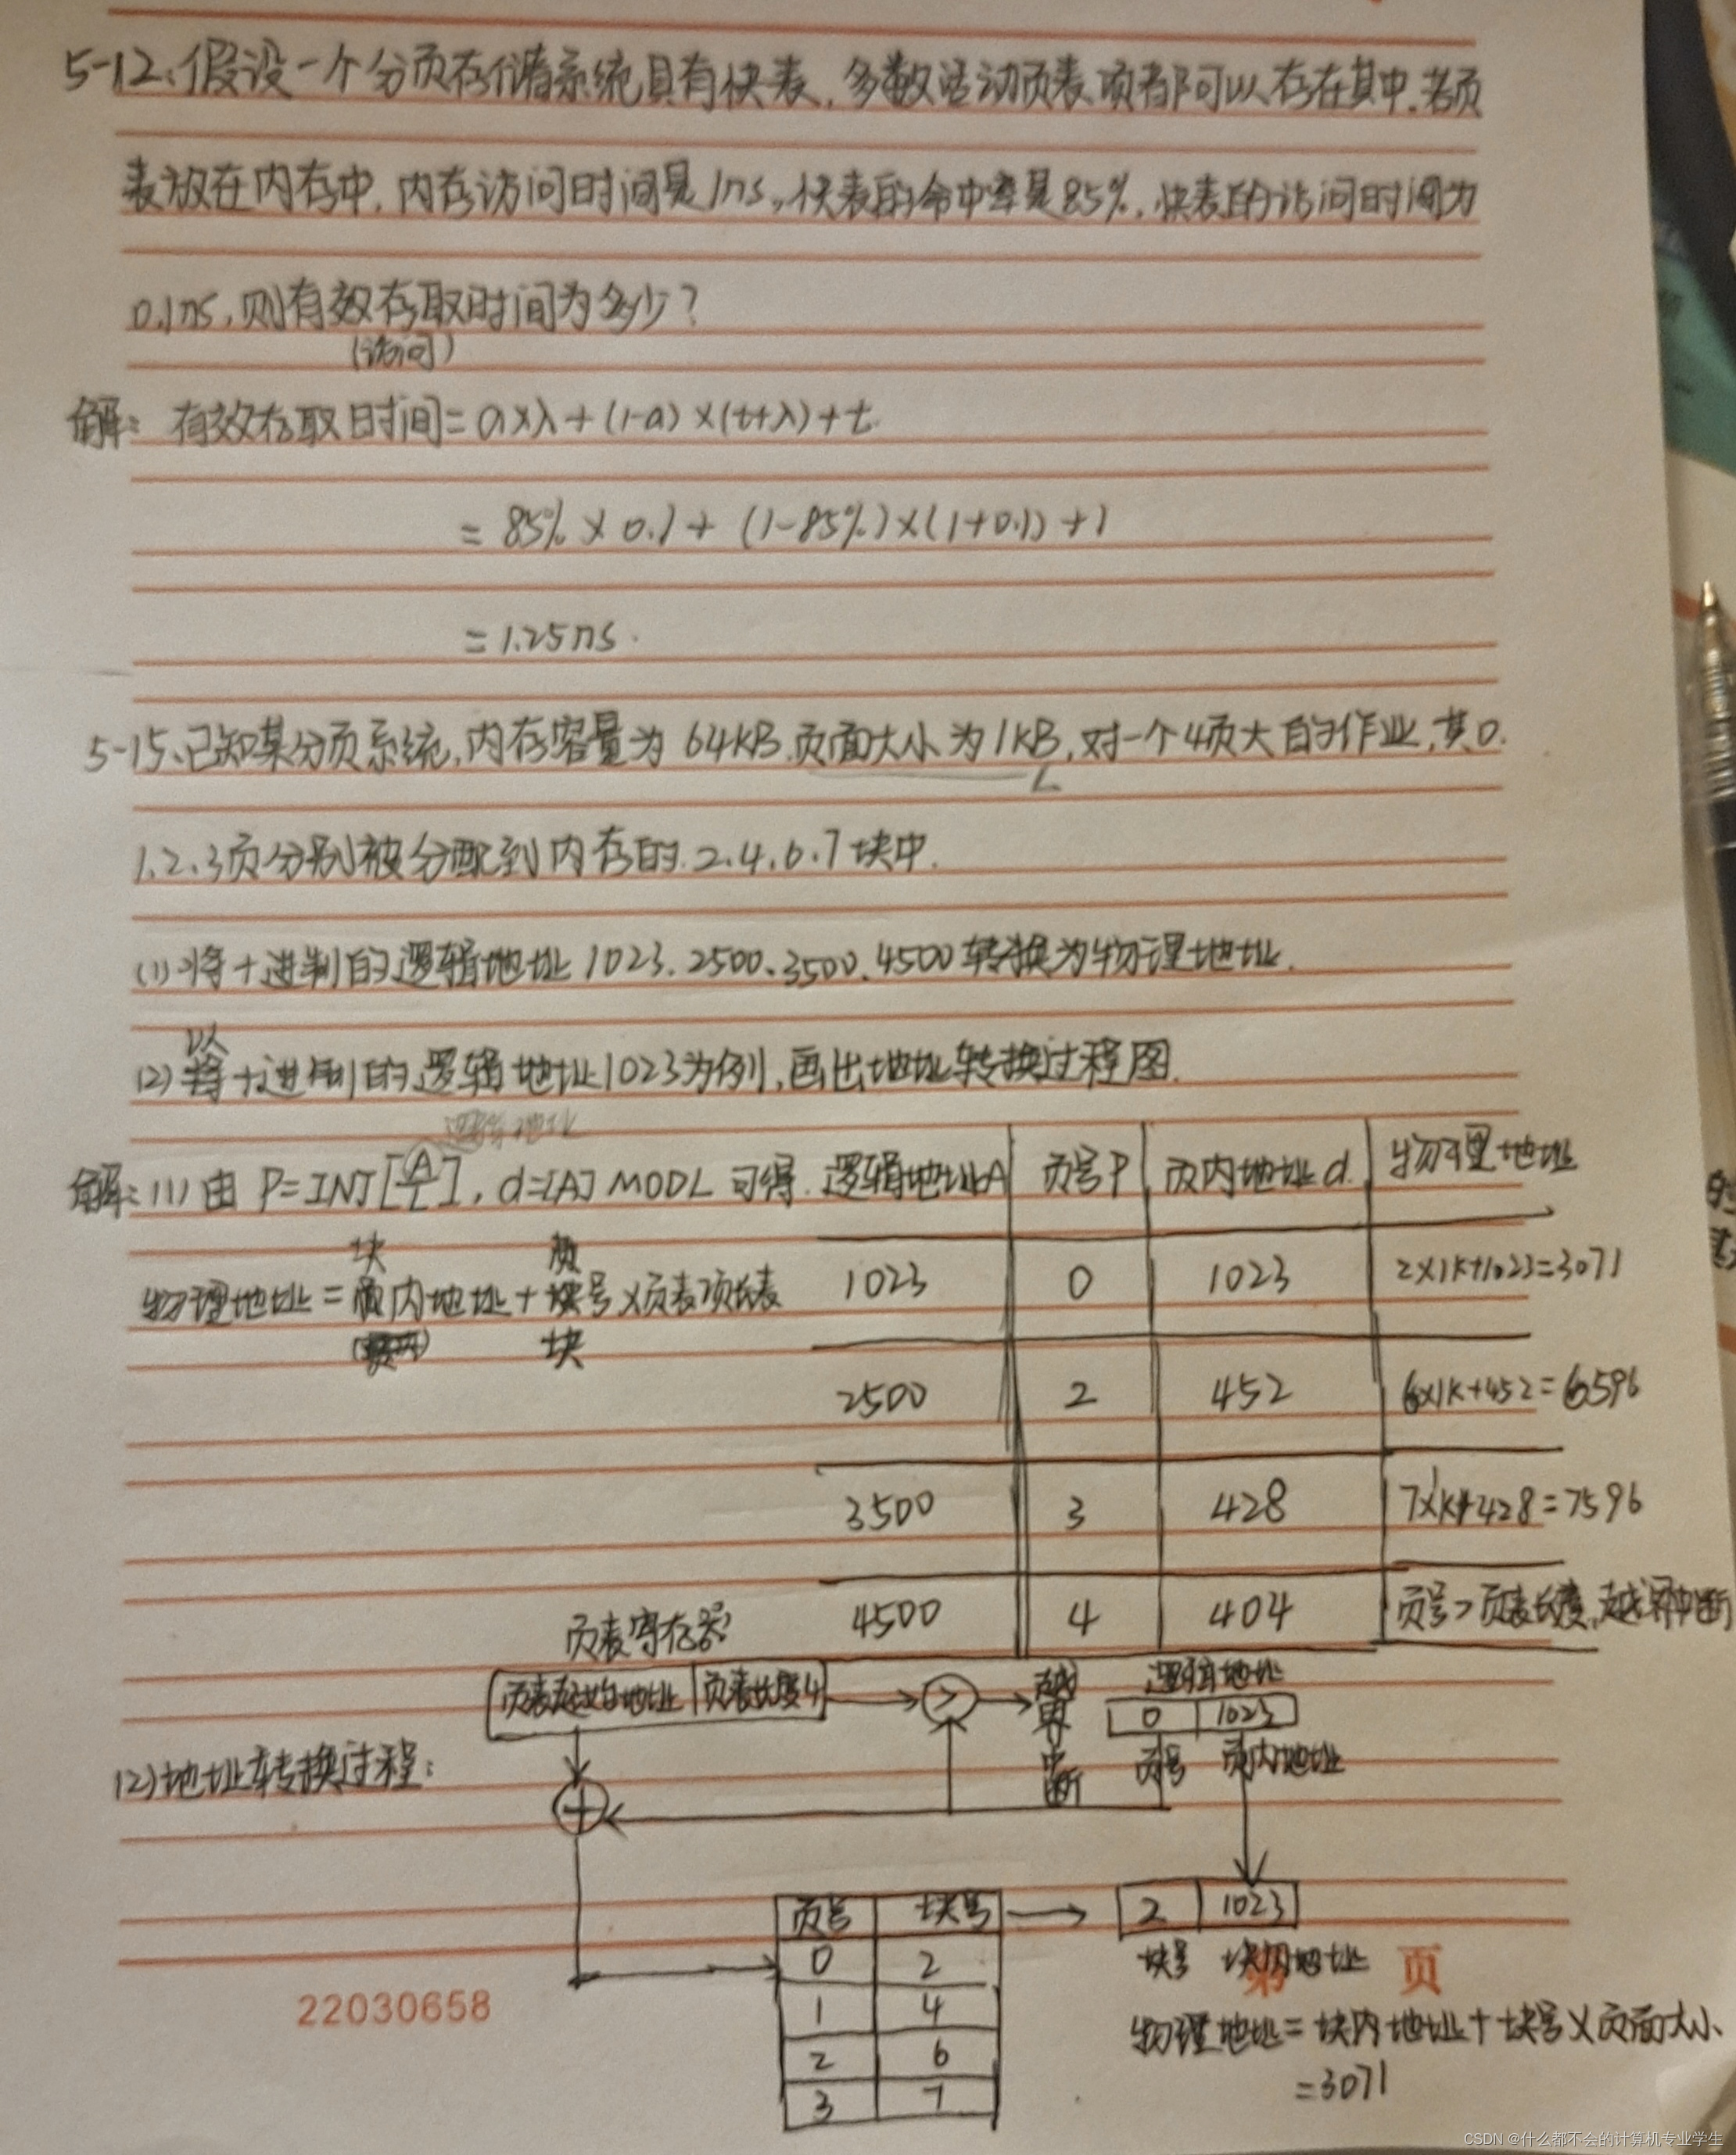 5-12、假设一个分页存储系统具有快表,多数活动页表项都可以存在其中.若页
表放在内存中,内存访问时间是1ns,快表的命中率是85%,快表的访问时间为
0.1ns,则有效存取时间为多少?
(访问)
解: 有效存取时间=a×λ+(1-a)×(t+λ)+t.
= 85% × 0.1 + (1-85%)×(1+0.1)+1
= 1.25ns.
5-15、已知某分页系统,内存容量为64KB.页面大小为1KB,对一个4页大的作业,其0.
L
1.2.3页分别被分配到内存的.2.4.6.7块中.
(1)将十进制的逻辑地址1023.2500、3500、4500转换为物理地址.
以
(2)将十进制的逻辑地址1023为例,画出地址转换过程图.
逻辑地址
解:(1)由 P=INT[A/L], d=[A] MOD L 可得.
块 页
物理地址=页内地址+块号×页表项长表
块
逻辑地址A 页号P 页内地址d. 物理地址
1023 0 1023 2×1K+1023=3071
2500 2 452 6×1K+452=6596
3500 3 428 7×1K+428=7596
4500 4 404 页号>页表长度,越界中断
页表寄存器:
页表起始地址 页表长度4 > 越界中断
逻辑地址
0 1023
页号 页内地址
(2)地址转换过程:
+
页号 块号
0 2
1 4
2 6
3 7
2 1023
块号 块内地址
第 页
物理地址=块内地址+块号×页面大小
=3071
22030658
CSDN @什么都不会的计算机专业学生